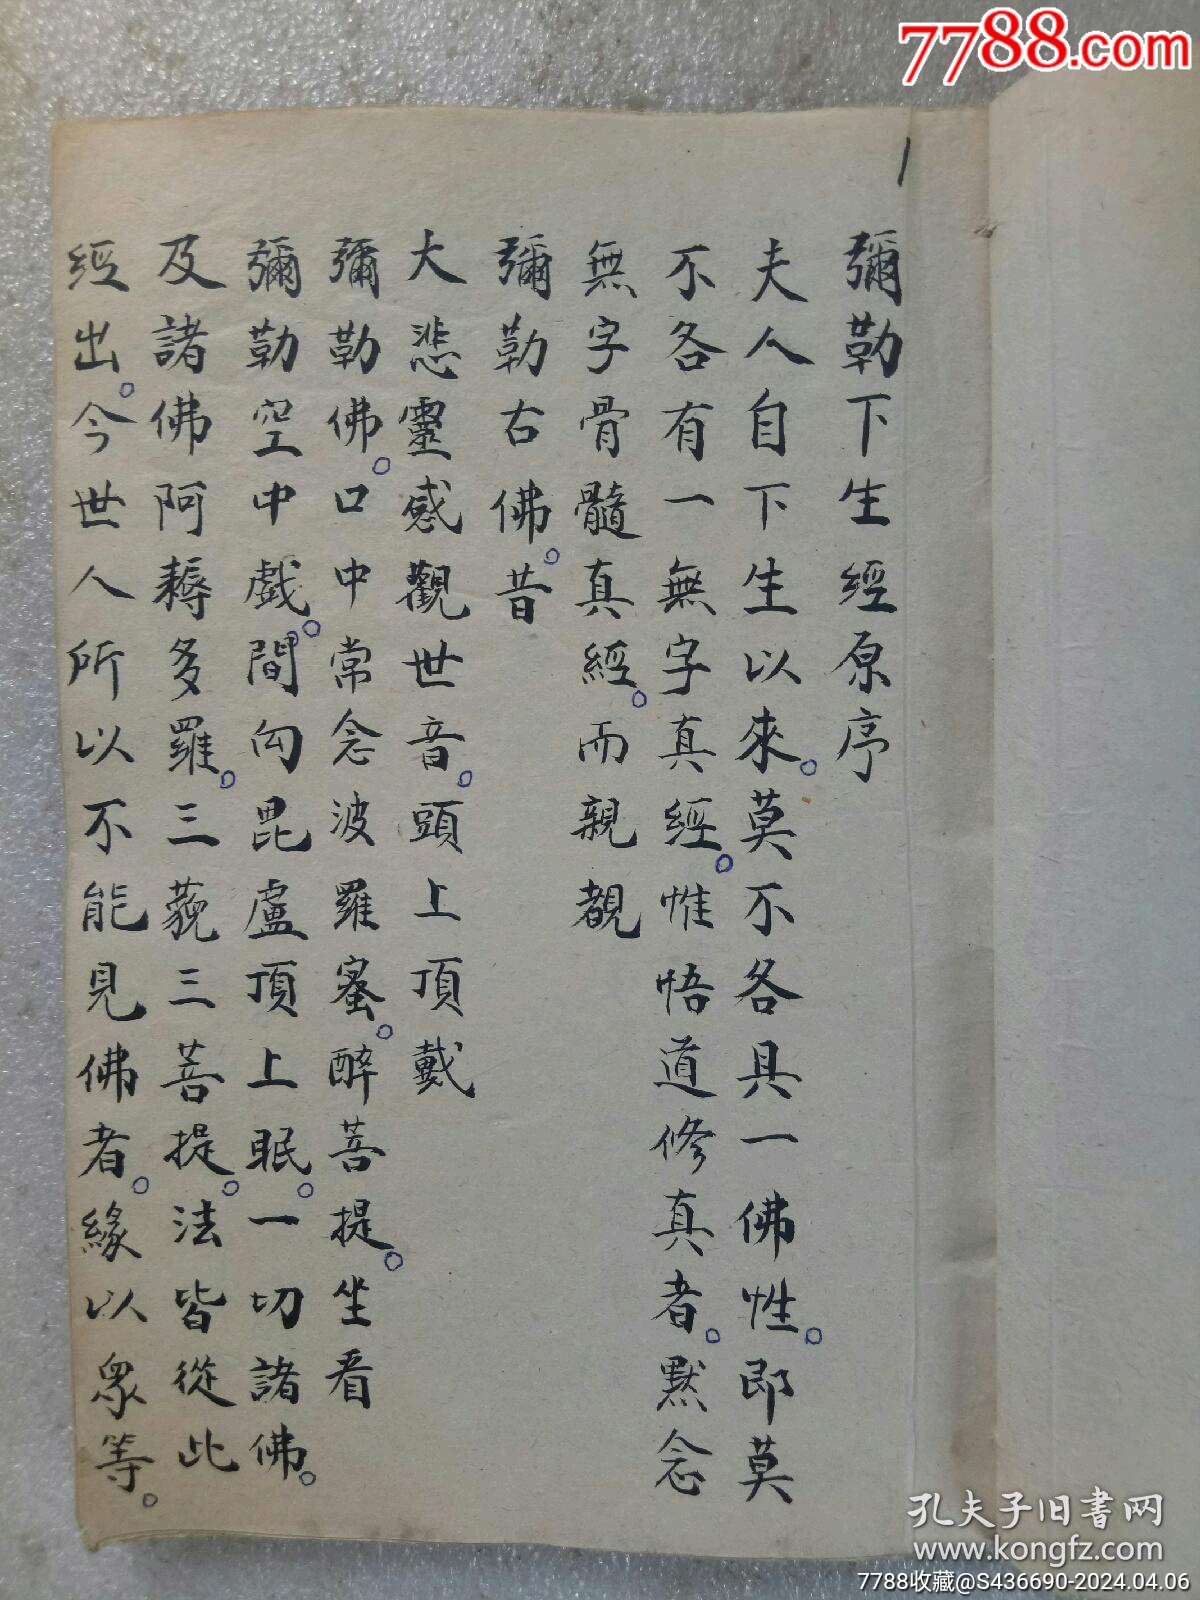 7788.com
1
彌勒下生經原序
夫人自下生以來。莫不各具一佛性。即莫
不各有一無字真經。惟悟道修真者。默念
無字骨髓真經。而親覩
彌勒古佛。昔
大悲靈感觀世音。頭上頂戴
彌勒佛。口中常念波羅蜜。醉菩提。坐看
彌勒空中戲。間向毘盧頂上眠。一切諸佛。
及諸佛阿耨多羅。三藐三菩提。法皆從此
經出。今世人所以不能見佛者。緣以眾等。
孔夫子旧书网
www.kongfz.com
7788收藏@S436690-2024.04.06